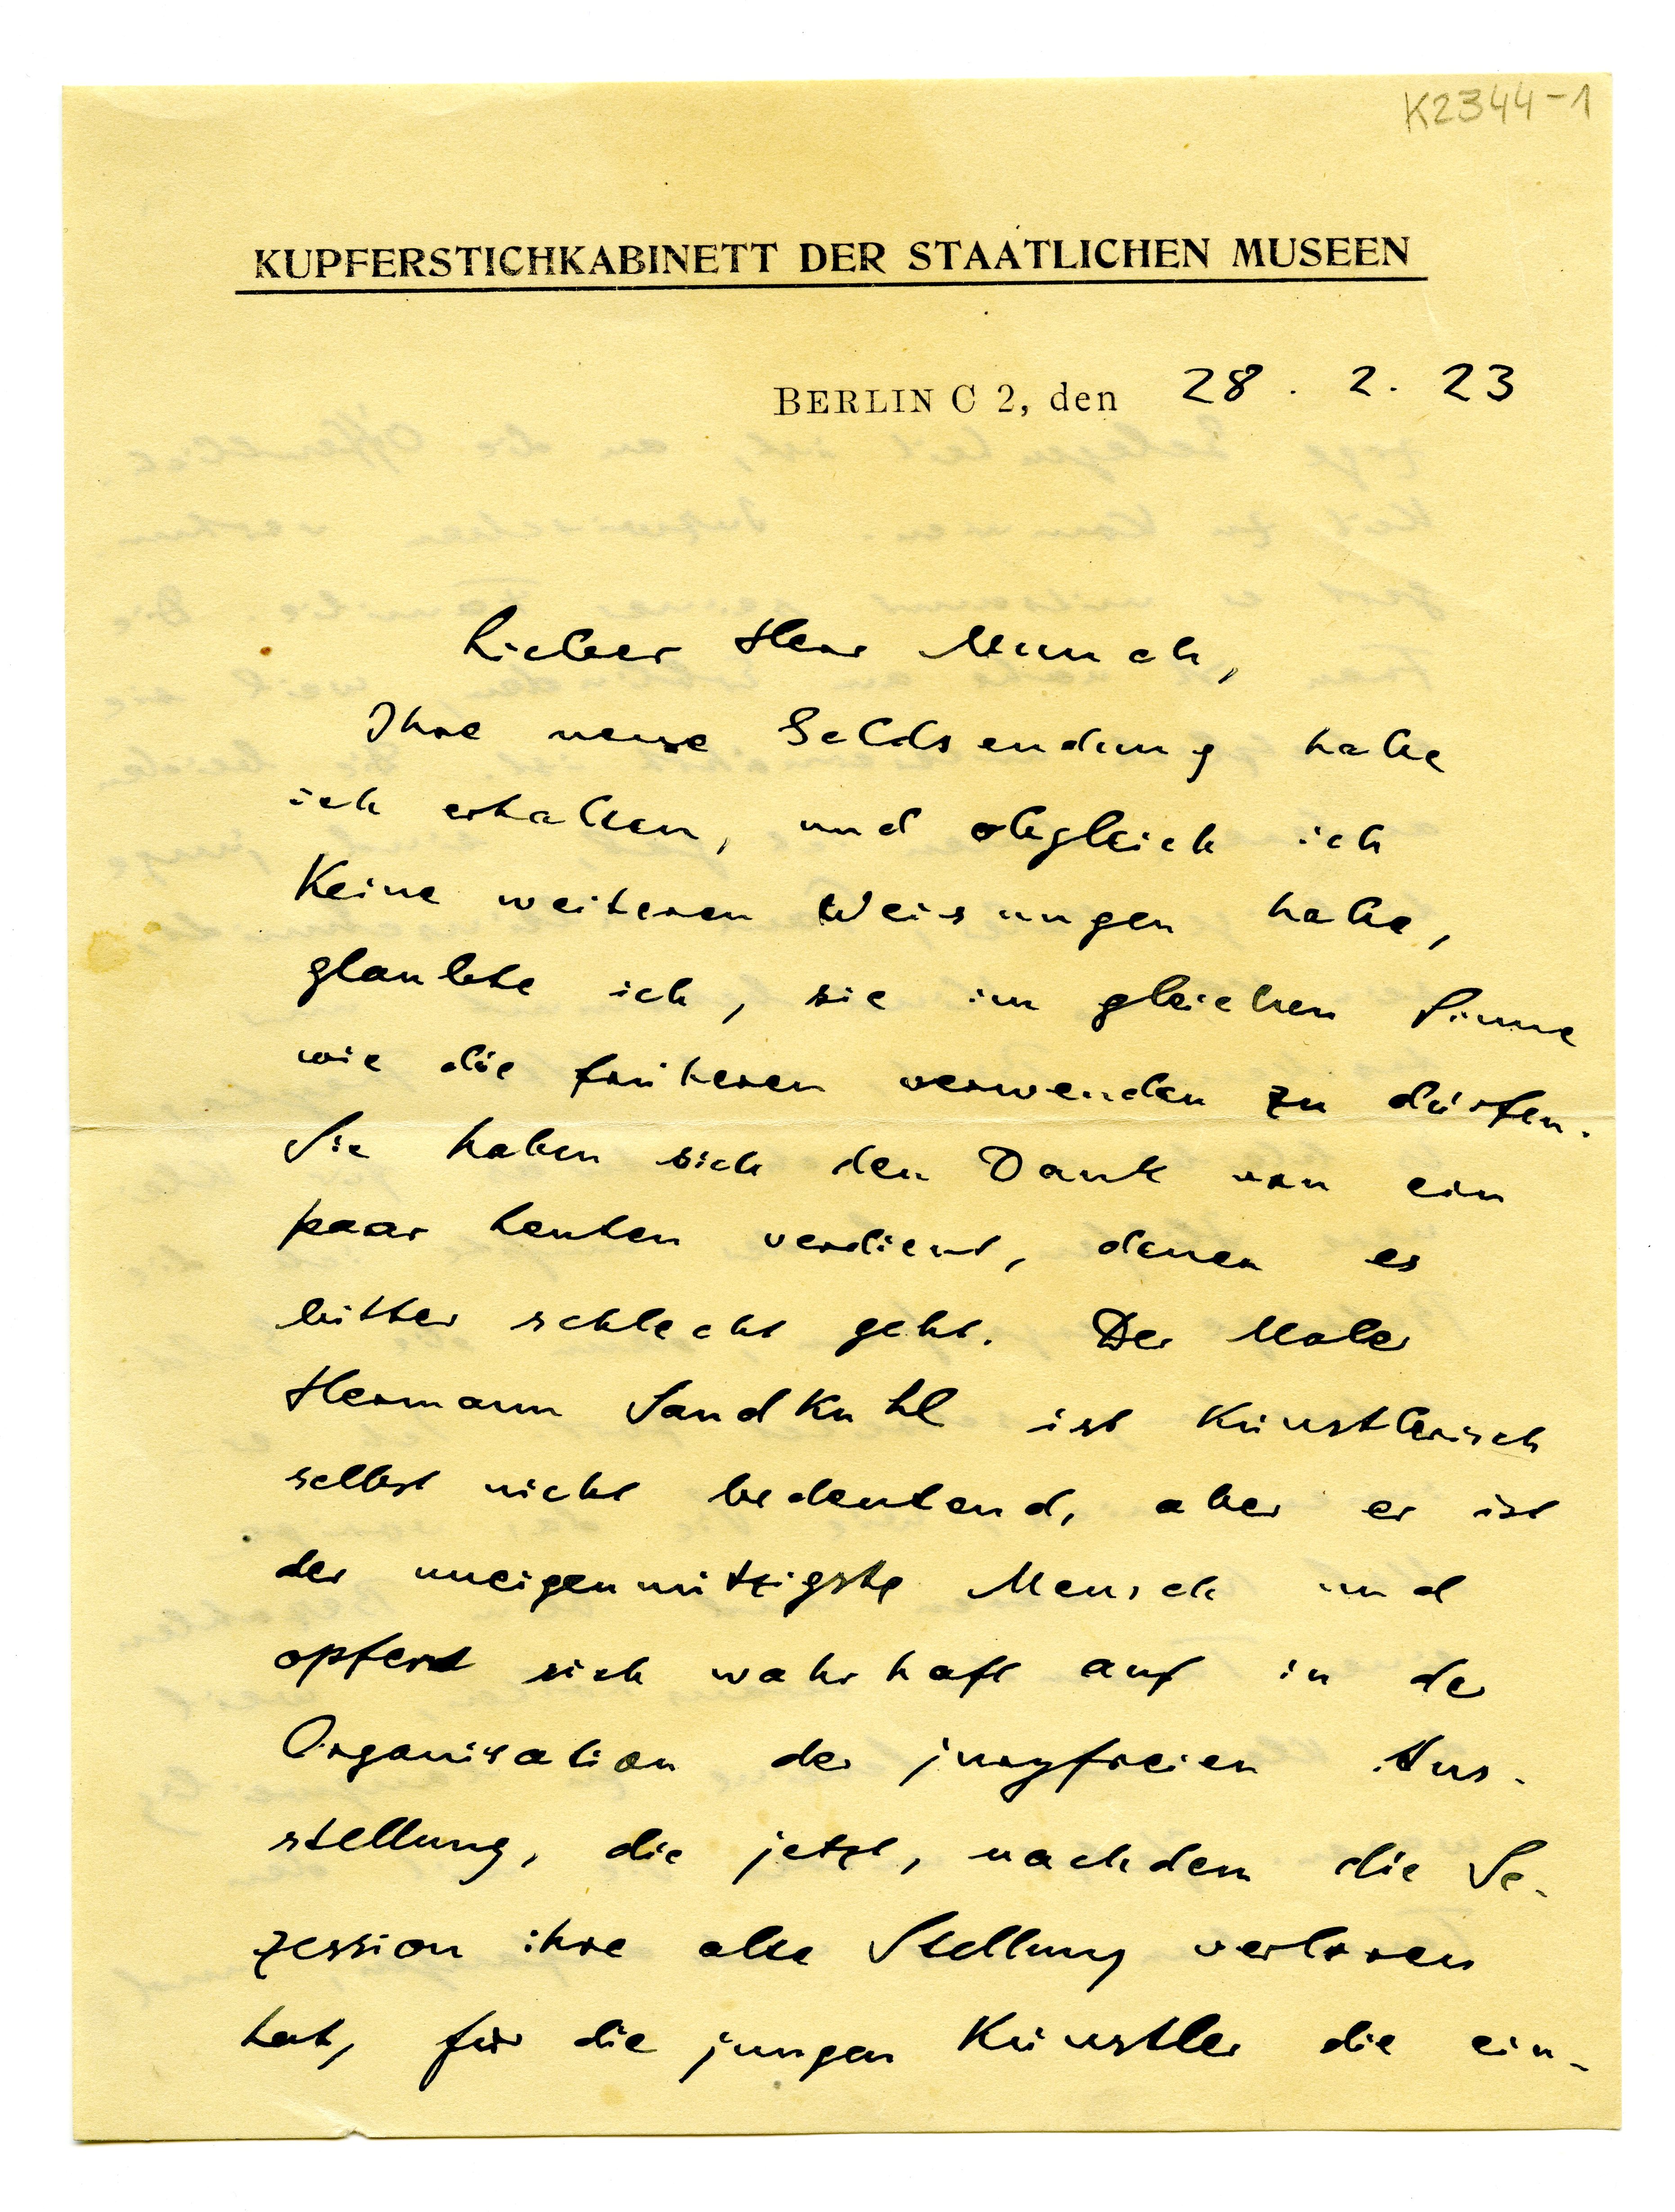 K2344-1
KUPFERSTICHKABINETT DER STAATLICHEN MUSEEN
BERLIN C 2, den 28. 2. 23
Lieber Herr Munch,
Ihre neue Geldsendung habe
ich erhalten, und obgleich ich
keine weiteren Weisungen habe,
glaubte ich, sie im gleichen Sinne
wie die früheren verwenden zu dürfen.
Sie haben sich den Dank von ein
paar Leuten verdient, denen es
bitter schlecht geht. Der Maler
Hermann Sandkuhl ist künstlerisch
selbst nicht bedeutend, aber er ist
der uneigennützigste Mensch und
opfert sich wahrhaft auf in der
Organisation der juryfreien Aus-
stellung, die jetzt, nachdem die Se-
zession ihre alte Stellung verloren
hat, für die jungen Künstler die ein-